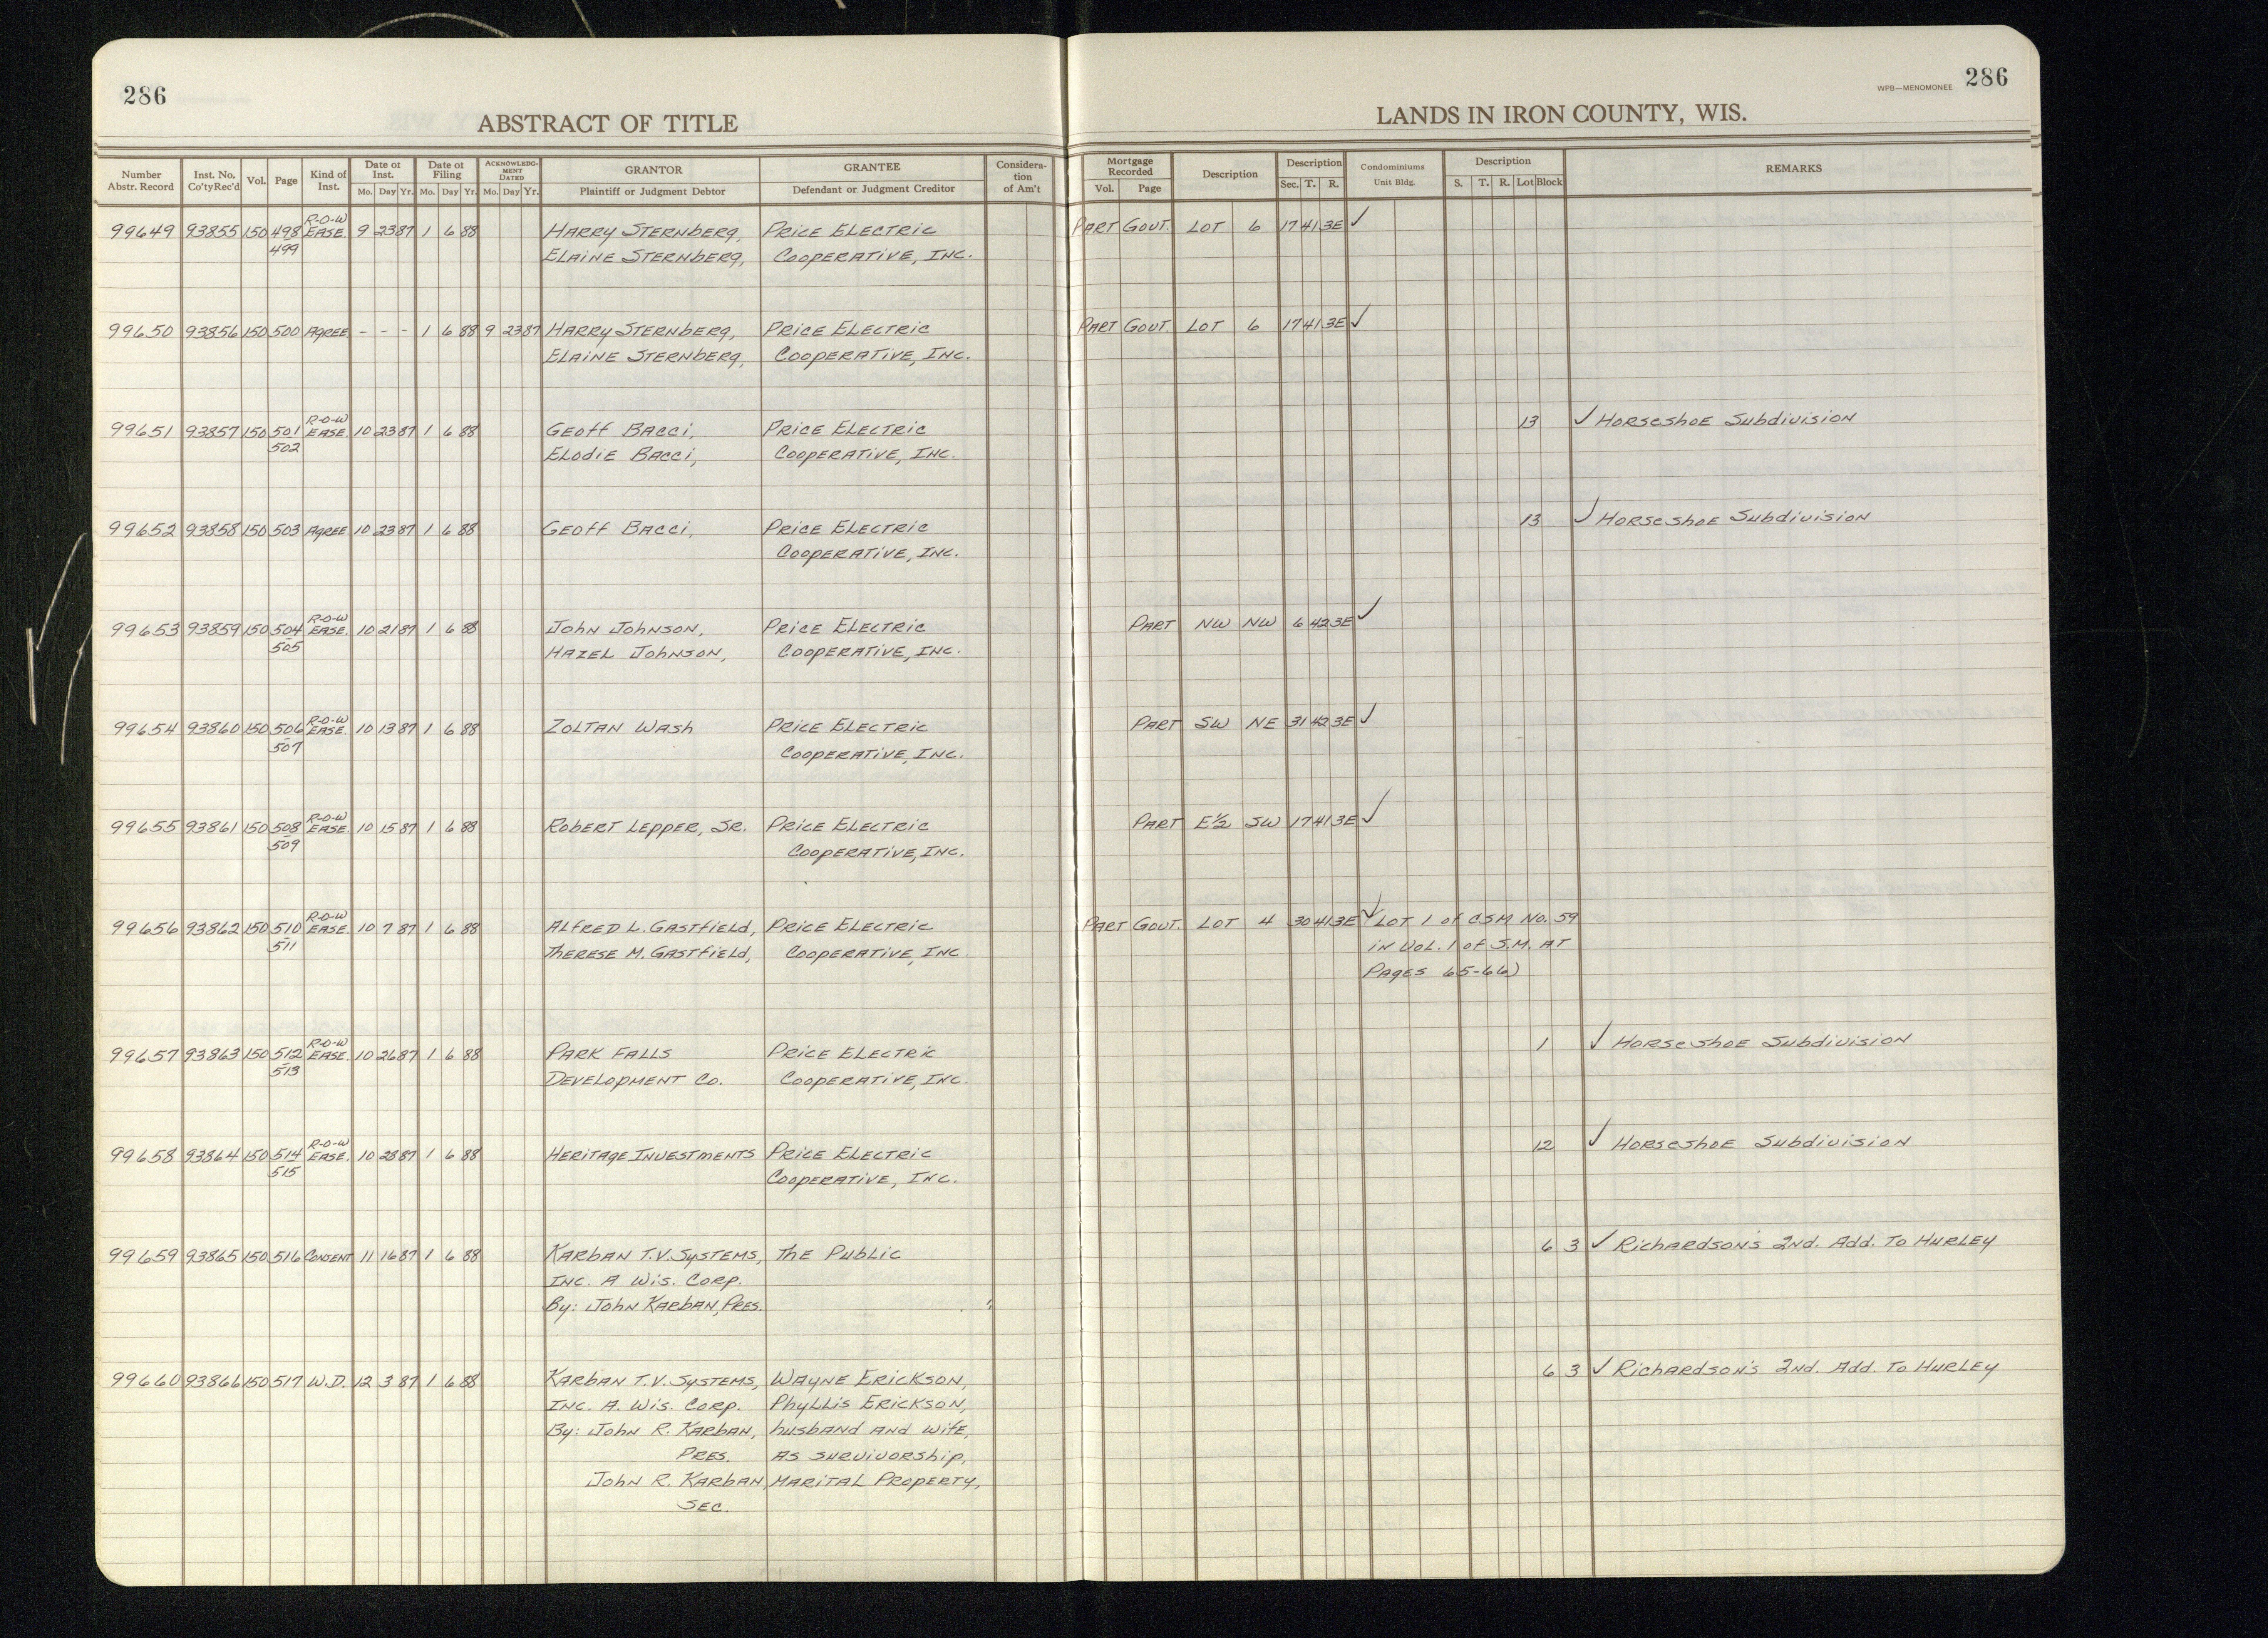 286
ABSTRACT OF TITLE
LANDS IN IRON COUNTY, WIS.
WPB—MENOMONEE 286
Number Abstr. Record Inst. No. Co'ty Rec'd Vol. Page Kind of Inst. Date of Inst. Mo. Day Yr. Date of Filing Mo. Day Yr. ACKNOWLEDGMENT DATED Mo. Day Yr. GRANTOR Plaintiff or Judgment Debtor GRANTEE Defendant or Judgment Creditor Considera-tion of Am't Mortgage Recorded Vol. Page Description Description Sec. T. R. Condominiums Unit Bldg. Description S. T. R. Lot Block REMARKS
99649 93855 150 498 R-O-W EASE. 9 23 87 1 6 88 HARRY STERNBERG, PRICE ELECTRIC PART GOVT. LOT 6 17 41 3E ✓
499 ELAINE STERNBERG, COOPERATIVE, INC.
99650 93856 150 500 AGREE - - - 1 6 88 9 23 87 HARRY STERNBERG, PRICE ELECTRIC PART GOVT. LOT 6 17 41 3E ✓
ELAINE STERNBERG, COOPERATIVE, INC.
99651 93857 150 501 R-O-W EASE 10 23 87 1 6 88 GEOFF BACCI, PRICE ELECTRIC 13 ✓ HORSESHOE SUBDIVISION
502 ELODIE BACCI, COOPERATIVE, INC.
99652 93858 150 503 AGREE 10 23 87 1 6 88 GEOFF BACCI, PRICE ELECTRIC 13 ✓ HORSESHOE SUBDIVISION
COOPERATIVE, INC.
99653 93859 150 504 R-O-W EASE. 10 21 87 1 6 88 JOHN JOHNSON, PRICE ELECTRIC PART NW NW 6 42 3E ✓
505 HAZEL JOHNSON, COOPERATIVE, INC.
99654 93860 150 506 R-O-W EASE. 10 13 87 1 6 88 ZOLTAN WASH PRICE ELECTRIC PART SW NE 31 42 3E ✓
507 COOPERATIVE, INC.
99655 93861 150 508 R-O-W EASE. 10 15 87 1 6 88 ROBERT LEPPER, SR. PRICE ELECTRIC PART E½ SW 17 41 3E ✓
509 COOPERATIVE, INC.
99656 93862 150 510 R-O-W EASE. 10 7 87 1 6 88 ALFRED L. GASTFIELD, PRICE ELECTRIC PART GOVT. LOT 4 30 41 3E ✓ LOT 1 OF CSM NO. 59
511 THERESE M. GASTFIELD, COOPERATIVE, INC. IN VOL. 1 OF S.M. AT
PAGES 65-66)
99657 93863 150 512 R-O-W EASE. 10 26 87 1 6 88 PARK FALLS PRICE ELECTRIC 1 ✓ HORSESHOE SUBDIVISION
513 DEVELOPMENT CO. COOPERATIVE, INC.
99658 93864 150 514 R-O-W EASE. 10 28 87 1 6 88 HERITAGE INVESTMENTS PRICE ELECTRIC 12 ✓ HORSESHOE SUBDIVISION
515 COOPERATIVE, INC.
99659 93865 150 516 CONSENT 11 16 87 1 6 88 KARBAN T.V. SYSTEMS, THE PUBLIC 6 3 ✓ RICHARDSON'S 2ND. ADD. TO HURLEY
INC. A WIS. CORP.
BY: JOHN KARBAN, PRES.
99660 93866 150 517 W.D. 12 3 87 1 6 88 KARBAN T.V. SYSTEMS, WAYNE ERICKSON, 6 3 ✓ RICHARDSON'S 2ND. ADD. TO HURLEY
INC. A. WIS. CORP. PHYLLIS ERICKSON,
BY: JOHN R. KARBAN, HUSBAND AND WIFE,
PRES. AS SURVIVORSHIP,
JOHN R. KARBAN, MARITAL PROPERTY,
SEC.